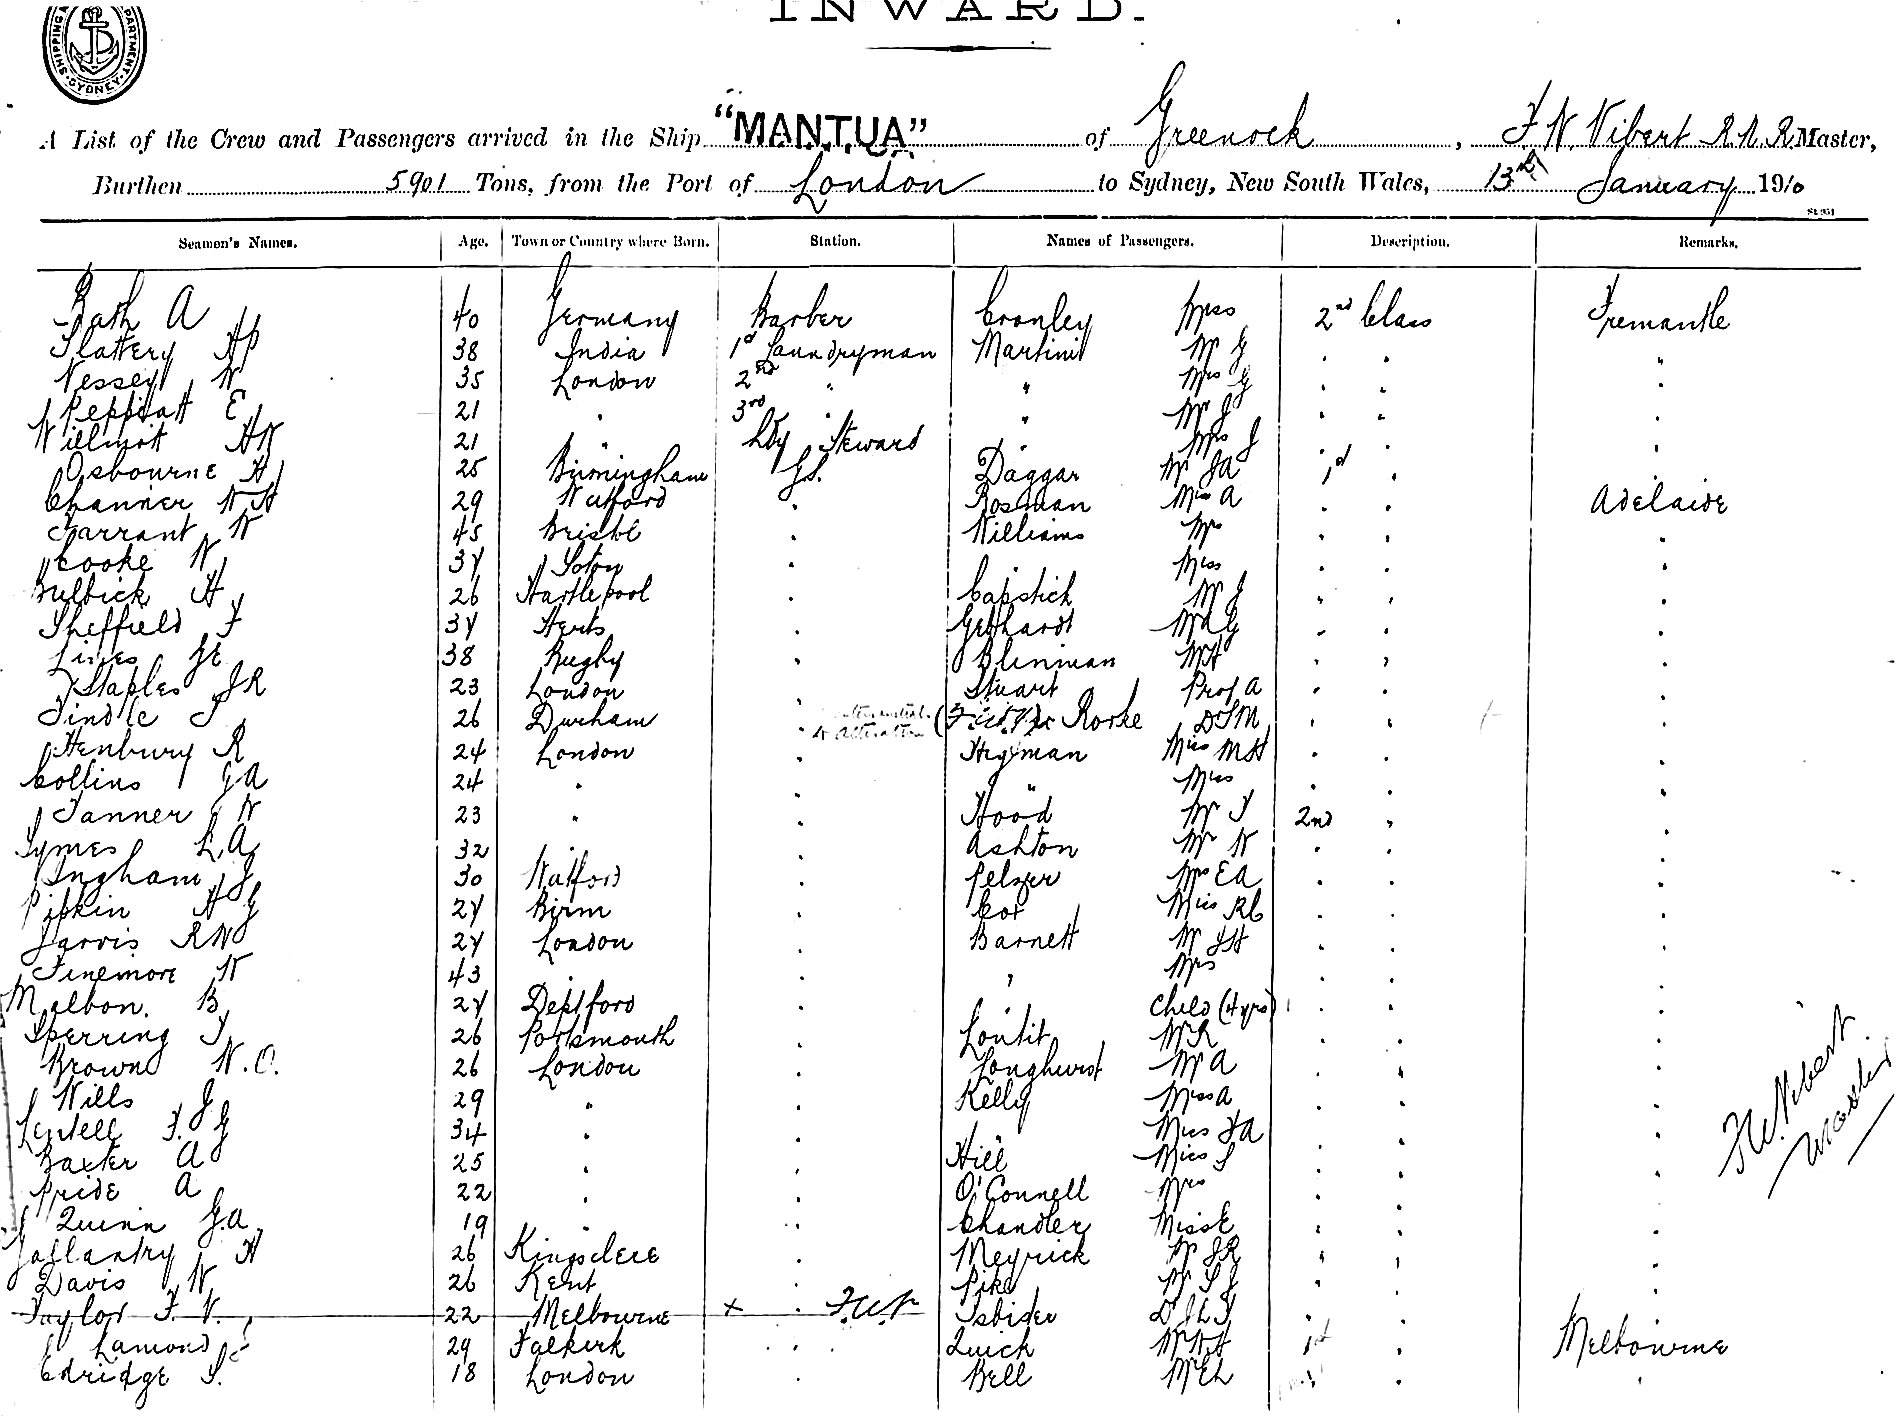 INWARD.
SHIPPING DEPARTMENT SYDNEY
A List of the Crew and Passengers arrived in the Ship "MANTUA" of Greenock, F W Vibert R.N.R. Master,
Burthen 5901 Tons, from the Port of London to Sydney, New South Wales, 13th January 1910
Seamen's Names. Age. Town or Country where Born. Station. Names of Passengers. Description. Remarks.
Bath A 40 Germany Barber Cronley Miss 2nd Class Fremantle
Slattery 38 India 1st Laundryman Martini Mr G . . "
Vessey W 35 London 2nd " " Mrs G . . .
Peppiatt E 21 " 3rd " " Mr J . . .
Willmott AW 21 " Ldy Steward " Mrs J . .
Osbourne H 25 Birmingham G.S. Daggar Mr JA 1st . .
Channer WH 29 Watford . Rosman Miss A . . Adelaide
Farrant W 45 Bristol . Williams Mrs . . .
Cooke W 37 Soton . Miss . . .
Bulbick H 26 Hartlepool . Capstick Mr J . . .
Sheffield F 37 Herts . Gebhardt . . .
Lines GE 38 Rugby . Blinman Mr H . . .
Staples JR 23 London . Stuart Prof A . . .
Tindle T 26 Durham . alteration Rorke . .
Henbury R 24 London . Heyman Miss MH . . .
Collins GA 24 " . " Miss . . .
Tanner W 23 " . Hood Mr T 2nd . .
Symes LA 32 . . Ashton Mr W . . .
Ingham J 30 Watford . Pelzer Mrs EA . . .
Pipkin HG 27 Birm . Cox Miss RC . . .
Jarvis RW 27 London . Barnett Mr JH . . .
Finemore W 43 . " Mrs . . .
Melbon. B 27 Deptford . " Child (4yrs) . . .
Sperring T 26 Portsmouth . Loutit Mr R . . .
Brown W.C. 26 London . Longhurst Mr A . . .
Wills J 29 " . Kelly Miss A . . .
34 . . . . .
Baxter A 25 . . Hill Miss S . . .
Pride A 22 . . O'Connell Mrs . . .
Quinn G.A. 19 . . Chandler Miss E . . .
Gallantry H 26 Kingsclere . Meyrick Mr JR . . .
Davis W 26 Kent . Pike . . .
Taylor F.V. 22 Melbourne x . F.W.V. Isbister . . .
Lamond J 29 Falkirk . Quick 1st . Melbourne
Edridge S. 18 London . Bell . .
F.W. Vibert
Master